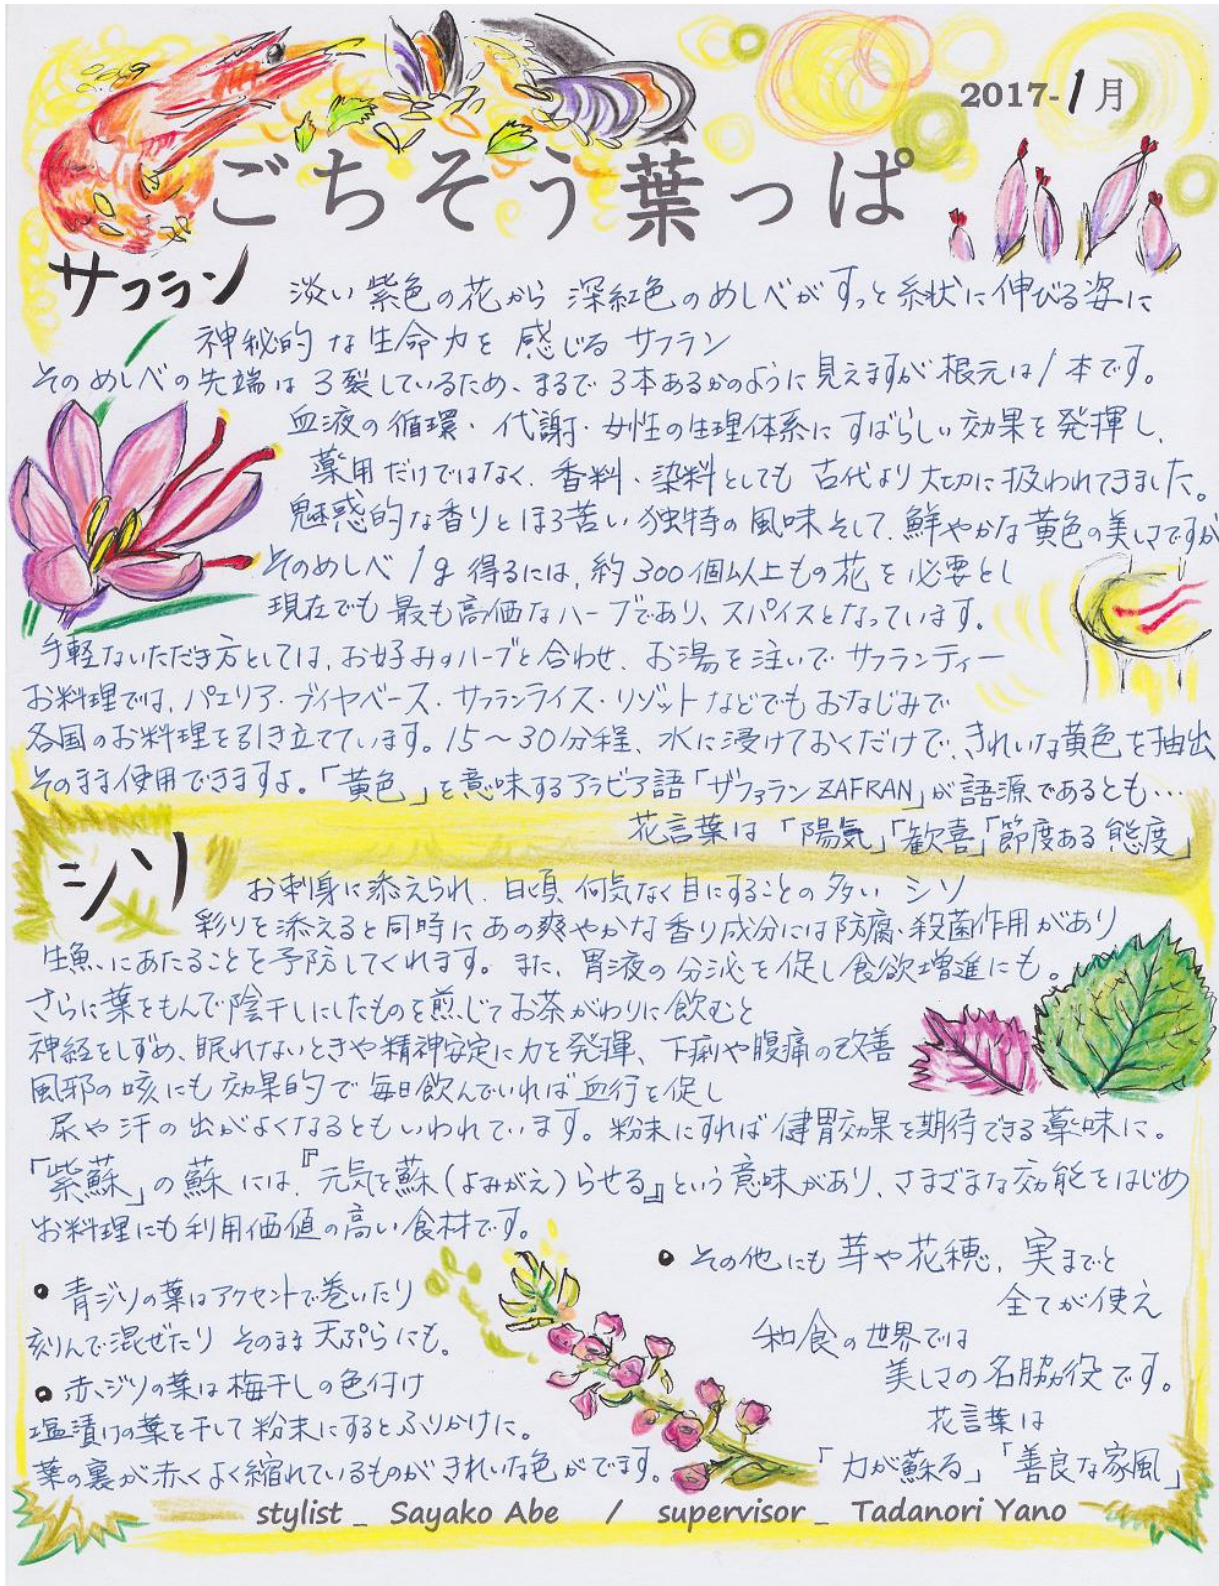 2017-1月
ごちそう葉っぱ
サフラン
淡い紫色の花から 深紅色のめしべがすっと糸状に伸びる姿に
神秘的な生命力を感じる サフラン
そのめしべの先端は3裂しているため、まるで3本あるかのように見えますが根元は1本です。
血液の循環・代謝・女性の生理体系にすばらしい効果を発揮し、
薬用だけではなく、香料・染料としても 古代より大切に扱われてきました。
魅惑的な香りとほろ苦い独特の風味そして、鮮やかな黄色の美しさですが
そのめしべ1g得るには、約300個以上もの花を必要とし
現在でも最も高価なハーブであり、スパイスとなっています。
手軽ないただき方としては、お好みのハーブと合わせ、お湯を注いでサフランティー
お料理では、パエリア・ブイヤベース・サフランライス・リゾットなどでもおなじみで
各国のお料理を引き立てています。15〜30分程、水に浸けておくだけで、きれいな黄色を抽出
そのまま使用できますよ。「黄色」を意味するアラビア語「ザファランZAFRAN」が語源であるとも…
花言葉は「陽気」「歓喜」「節度ある態度」
シソ
お刺身に添えられ、日頃何気なく目にすることの多い シソ
彩りを添えると同時にあの爽やかな香り成分には防腐・殺菌作用があり
生魚にあたることを予防してくれます。また、胃液の分泌を促し食欲増進にも。
さらに葉をもんで陰干しにしたものを煎じてお茶がわりに飲むと
神経をしずめ、眠れないときや精神安定に力を発揮、下痢や腹痛の改善
風邪の咳にも効果的で毎日飲んでいれば血行を促し
尿や汗の出がよくなるともいわれています。粉末にすれば健胃効果を期待できる薬味に。
「紫蘇」の蘇には、『元気を蘇(よみがえ)らせる』という意味があり、さまざまな効能をはじめ
お料理にも利用価値の高い食材です。
● 青ジソの葉はアクセントで巻いたり
刻んで混ぜたり そのまま天ぷらにも。
● 赤ジソの葉は梅干しの色付け
塩漬けの葉を干して粉末にするとふりかけに。
葉の裏が赤くよく縮れているものがきれいな色がでます。
● その他にも芽や花穂、実までと
全てが使え
和食の世界では
美しさの名脇役です。
花言葉は
「力が蘇る」「善良な家風」
stylist _ Sayako Abe / supervisor _ Tadanori Yano